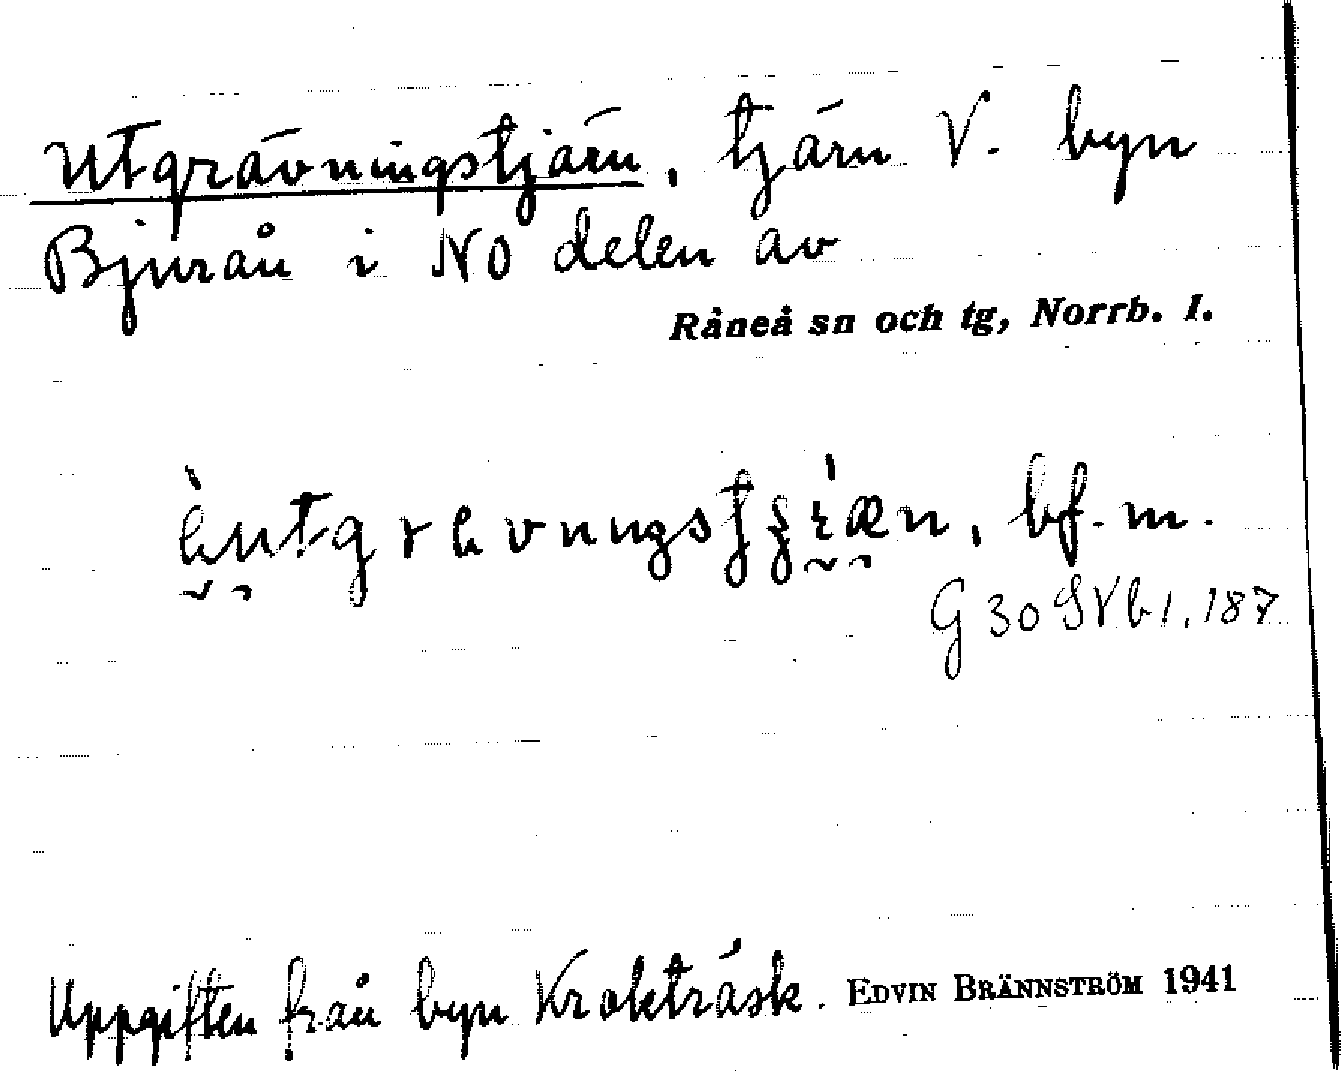 Utgrävningstjärn, tjärn V. byn
Bjurå i NO delen av
Råneå sn och tg, Norrb. l.
bf. m.
G 30 SVb 1. 187
Uppgiften från byn Krokträsk. EDVIN BRÄNNSTRÖM 1941